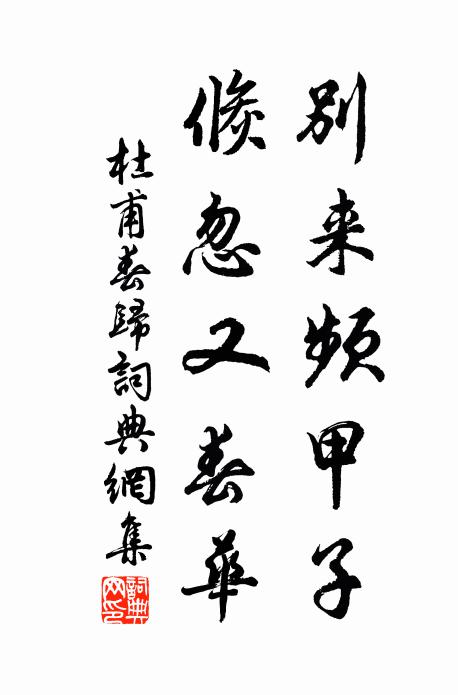 別来頻甲子
倐忽又春華
杜甫春歸詞典網集
詞典网印